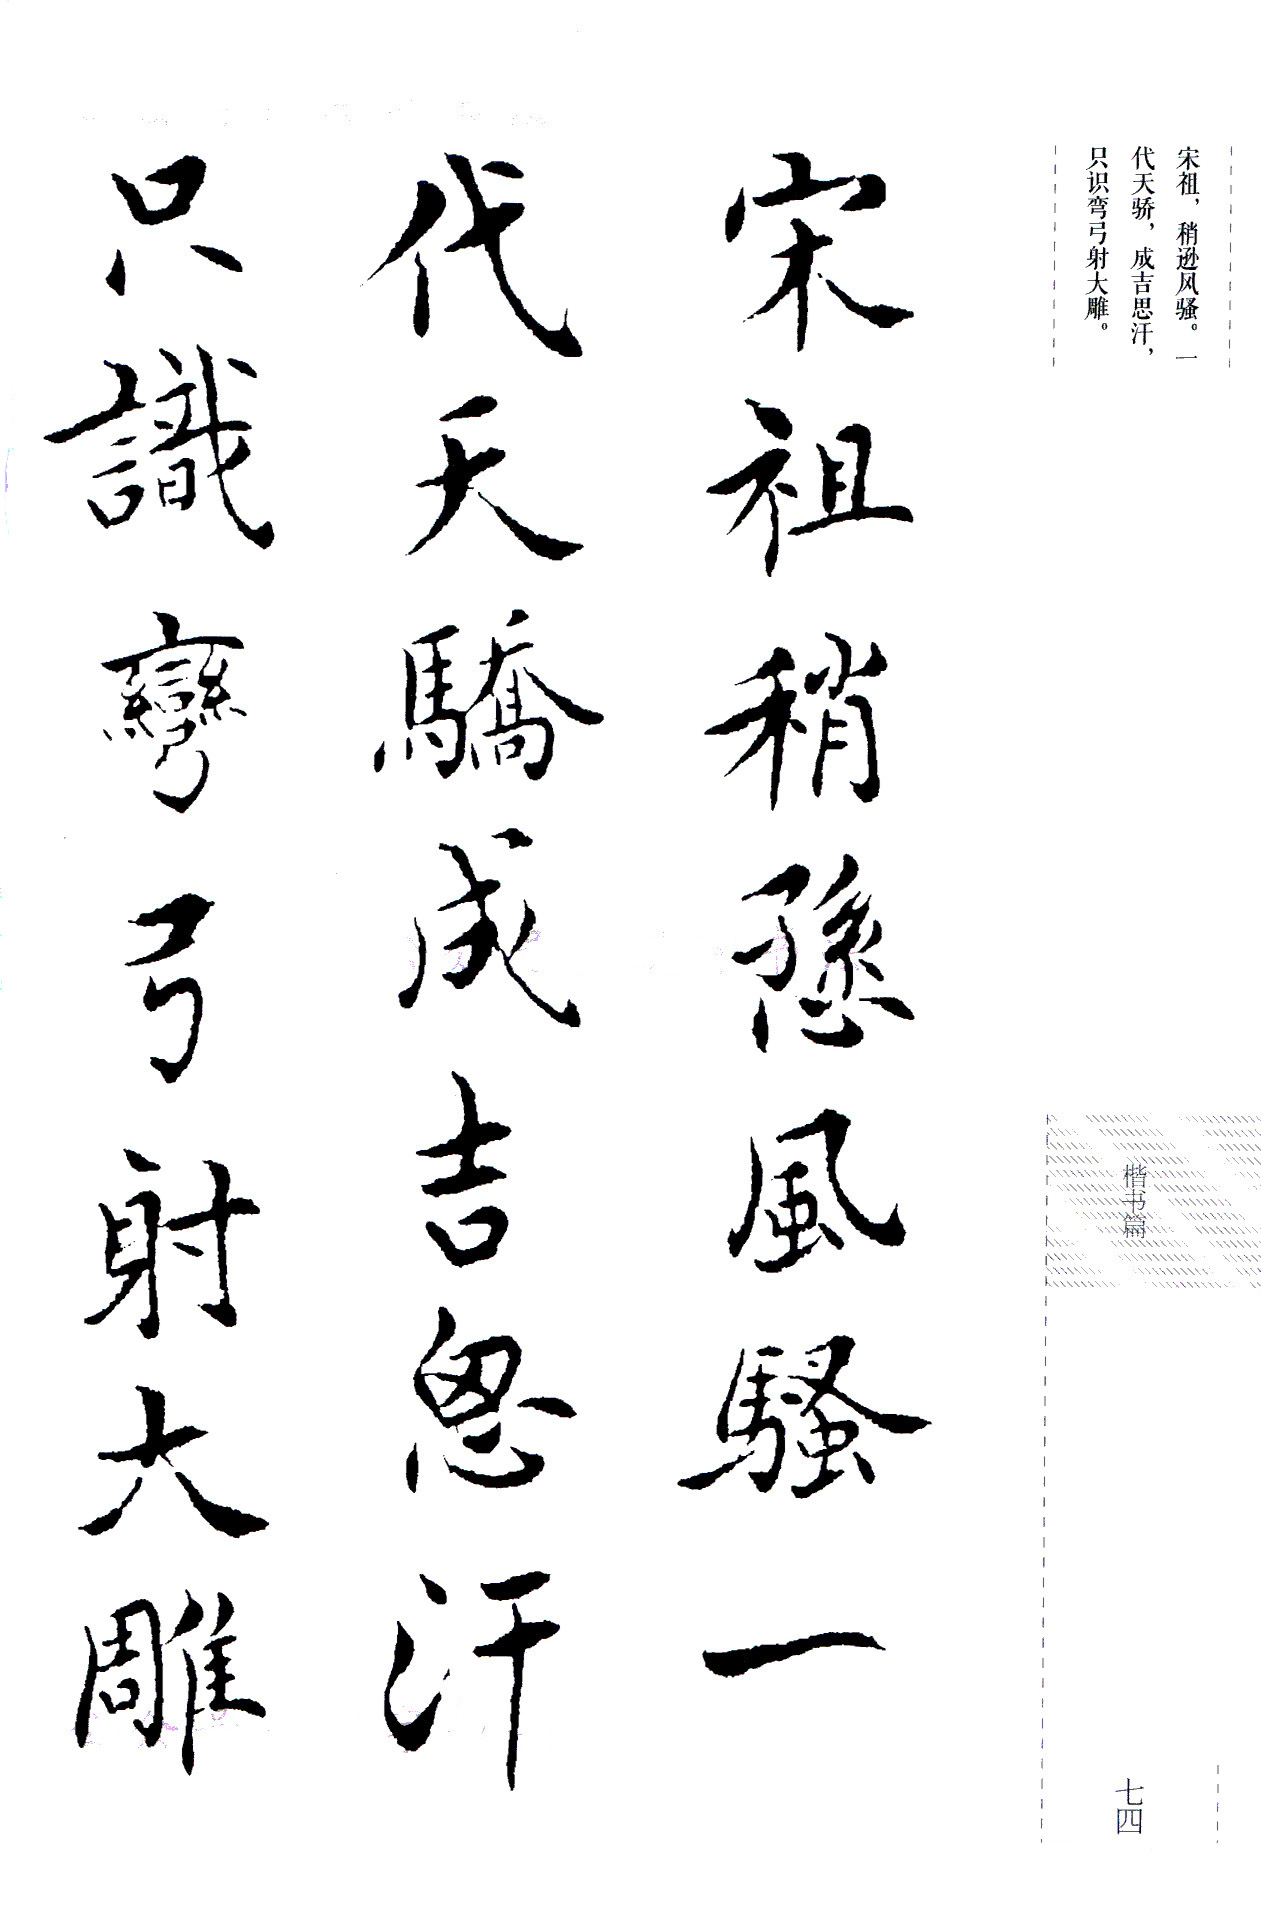 宋祖，稍逊风骚。一
代天骄，成吉思汗，
只识弯弓射大雕。
楷书篇
七四
宋祖稍愻風騷一
代天驕成吉思汗
只識彎弓射大雕